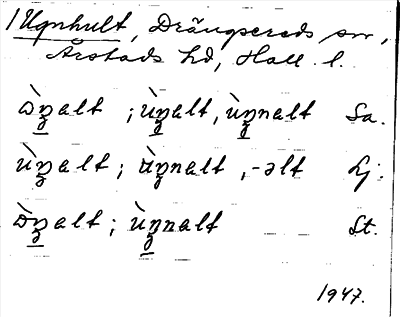 1 Ugnhult, Drängsereds sn,
Årstads hd, Hall. l.
òŋalt ; ùŋalt, ùŋnalt Sa.
ùŋalt ; ùŋnalt, -əlt Lj.
òŋalt ; ùŋnalt St.
1947.